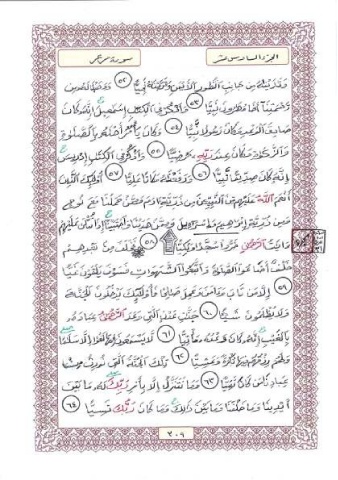 الجزء السادس عشر
سورة مريم
وَنَٰدَيْنَٰهُ مِن جَانِبِ ٱلطُّورِ ٱلْأَيْمَنِ وَقَرَّبْنَٰهُ نَجِيًّا ٥٢ وَوَهَبْنَا لَهُۥ مِن
رَّحْمَتِنَآ أَخَاهُ هَٰرُونَ نَبِيًّا ٥٣ وَٱذْكُرْ فِى ٱلْكِتَٰبِ إِسْمَٰعِيلَ إِنَّهُۥ كَانَ
صَادِقَ ٱلْوَعْدِ وَكَانَ رَسُولًا نَّبِيًّا ٥٤ وَكَانَ يَأْمُرُ أَهْلَهُۥ بِٱلصَّلَوٰةِ
وَٱلزَّكَوٰةِ وَكَانَ عِندَ رَبِّهِۦ مَرْضِيًّا ٥٥ وَٱذْكُرْ فِى ٱلْكِتَٰبِ إِدْرِيسَ
إِنَّهُۥ كَانَ صِدِّيقًا نَّبِيًّا ٥٦ وَرَفَعْنَٰهُ مَكَانًا عَلِيًّا ٥٧ أُو۟لَٰٓئِكَ ٱلَّذِينَ
أَنْعَمَ ٱللَّهُ عَلَيْهِم مِّنَ ٱلنَّبِيِّـۧنَ مِن ذُرِّيَّةِ ءَادَمَ وَمِمَّنْ حَمَلْنَا مَعَ نُوحٍ
وَمِن ذُرِّيَّةِ إِبْرَٰهِيمَ وَإِسْرَٰٓءِيلَ وَمِمَّنْ هَدَيْنَا وَٱجْتَبَيْنَآ إِذَا تُتْلَىٰ عَلَيْهِمْ
ءَايَٰتُ ٱلرَّحْمَٰنِ خَرُّوا۟ سُجَّدًا وَبُكِيًّا ٥٨ فَخَلَفَ مِنۢ بَعْدِهِمْ
خَلْفٌ أَضَاعُوا۟ ٱلصَّلَوٰةَ وَٱتَّبَعُوا۟ ٱلشَّهَوَٰتِ فَسَوْفَ يَلْقَوْنَ غَيًّا
٥٩ إِلَّا مَن تَابَ وَءَامَنَ وَعَمِلَ صَٰلِحًا فَأُو۟لَٰٓئِكَ يَدْخُلُونَ ٱلْجَنَّةَ
وَلَا يُظْلَمُونَ شَيْـًٔا ٦٠ جَنَّٰتِ عَدْنٍ ٱلَّتِى وَعَدَ ٱلرَّحْمَٰنُ عِبَادَهُۥ
بِٱلْغَيْبِ إِنَّهُۥ كَانَ وَعْدُهُۥ مَأْتِيًّا ٦١ لَّا يَسْمَعُونَ فِيهَا لَغْوًا إِلَّا سَلَٰمًا
وَلَهُمْ رِزْقُهُمْ فِيهَا بُكْرَةً وَعَشِيًّا ٦٢ تِلْكَ ٱلْجَنَّةُ ٱلَّتِى نُورِثُ مِنْ
عِبَادِنَا مَن كَانَ تَقِيًّا ٦٣ وَمَا نَتَنَزَّلُ إِلَّا بِأَمْرِ رَبِّكَ لَهُۥ مَا بَيْنَ
أَيْدِينَا وَمَا خَلْفَنَا وَمَا بَيْنَ ذَٰلِكَ وَمَا كَانَ رَبُّكَ نَسِيًّا ٦٤
٣٠٩